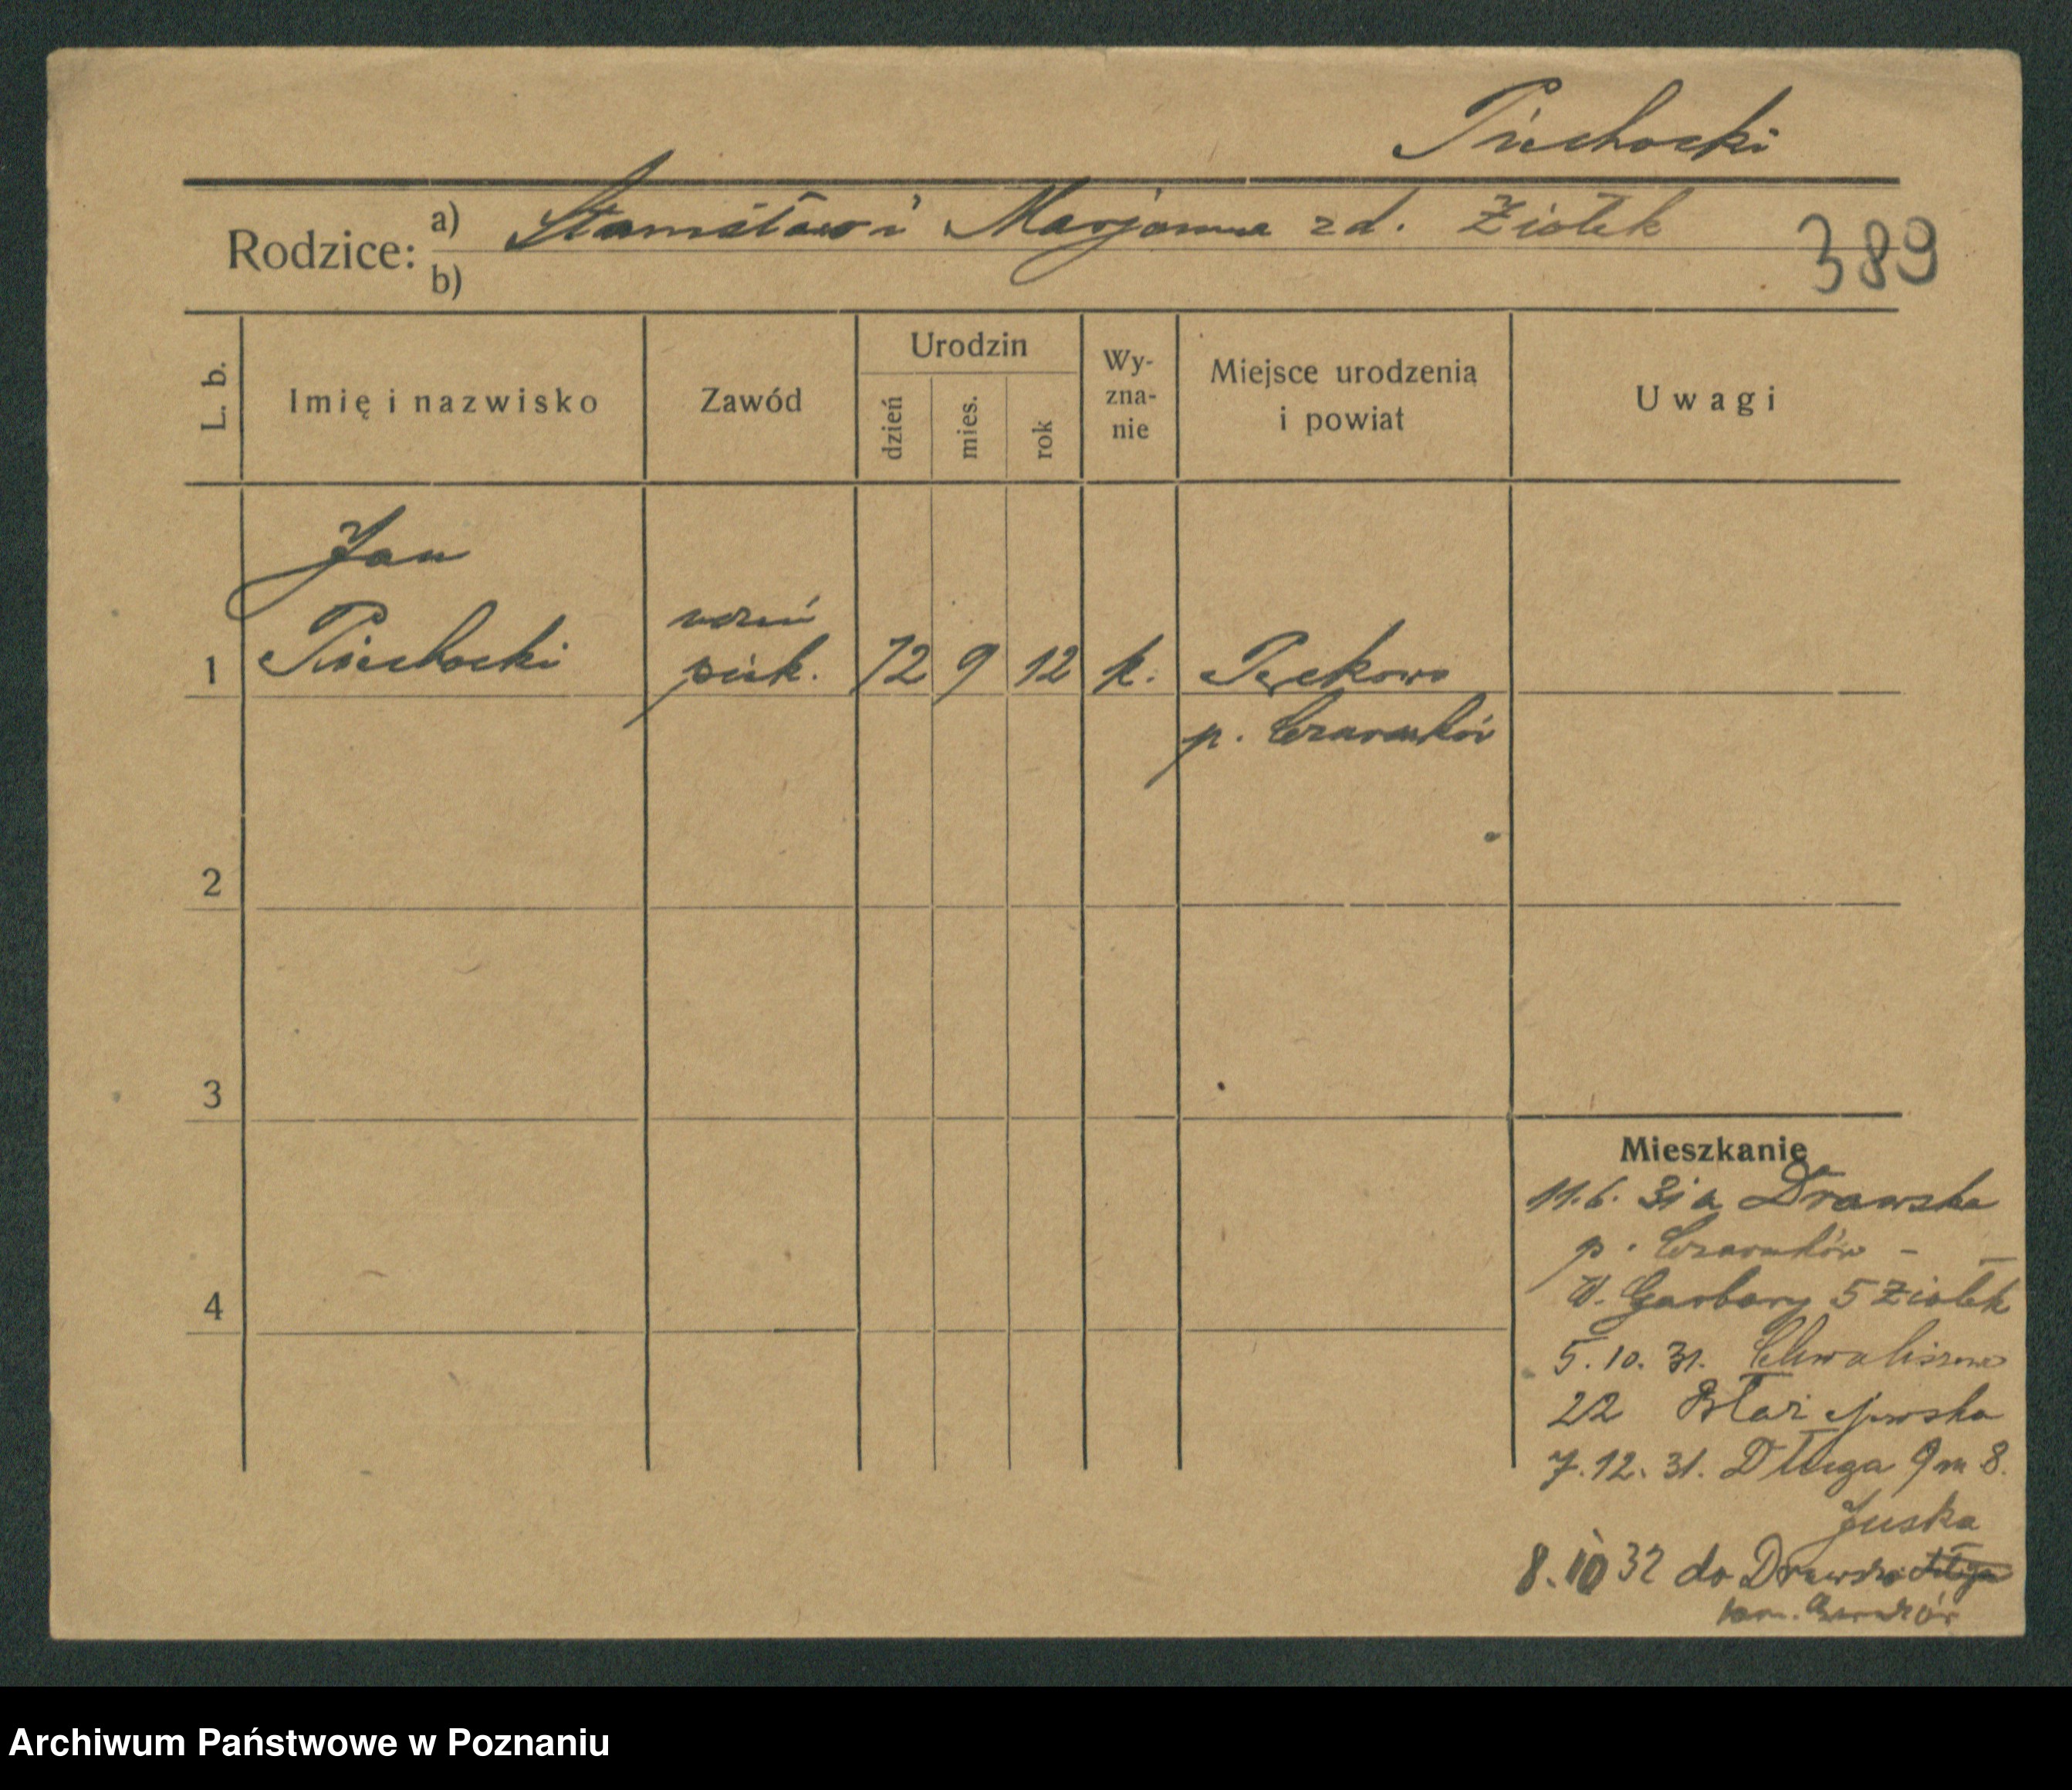 Piechocki
Rodzice: a) Stanisław i Marjanna zd. Ziołek
b)
389
L. b.
Imię i nazwisko
Zawód
Urodzin
dzień
mies.
rok
Wy-
zna-
nie
Miejsce urodzenia
i powiat
Uwagi
Jan
1 Piechocki
uczeń
piek.
12 9 12 k. Pęckowo
p. Czarnków
2
3
4
Mieszkanie
11.6. 31 a Drawska
p. Czarnków -
W. Garbary 5 Ziołek
5.10.31. Chwaliszewo
22 Błażejewska
7.12.31. Długa 9 m 8.
Juska
8.10 32 do Drawsko
pow. Czarnków
Archiwum Państwowe w Poznaniu